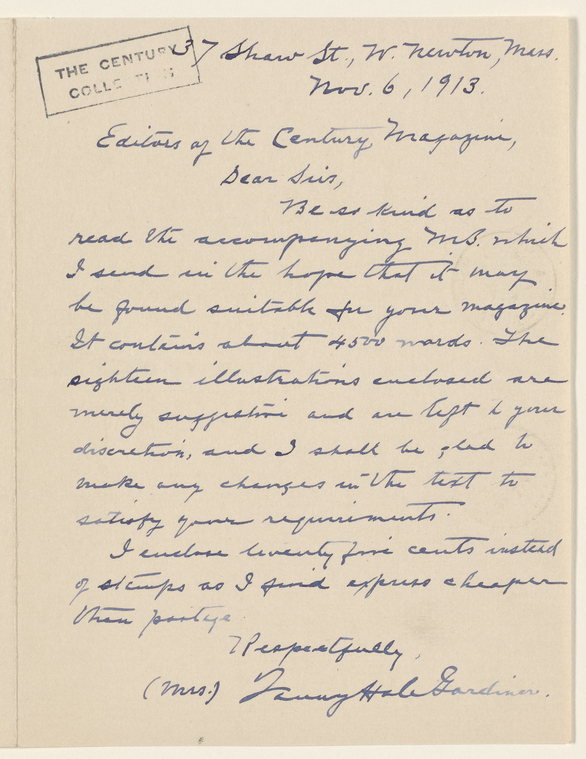 THE CENTURY
COLLECTION
37 Shaw St., W. Newton, Mass.
Nov. 6, 1913.
Editors of the Century Magazine,
Dear Sirs,
Be so kind as to
read the accompanying MS. which
I send in the hope that it may
be found suitable for your magazine.
It contains about 4500 words. The
eighteen illustrations enclosed are
merely suggestive and are left to your
discretion, and I shall be glad to
make any changes in the text to
satisfy your requirements.
I enclose twenty five cents instead
of stamps as I find express cheaper
than postage.
Respectfully,
(Mrs.) Fanny Hale Gardiner.